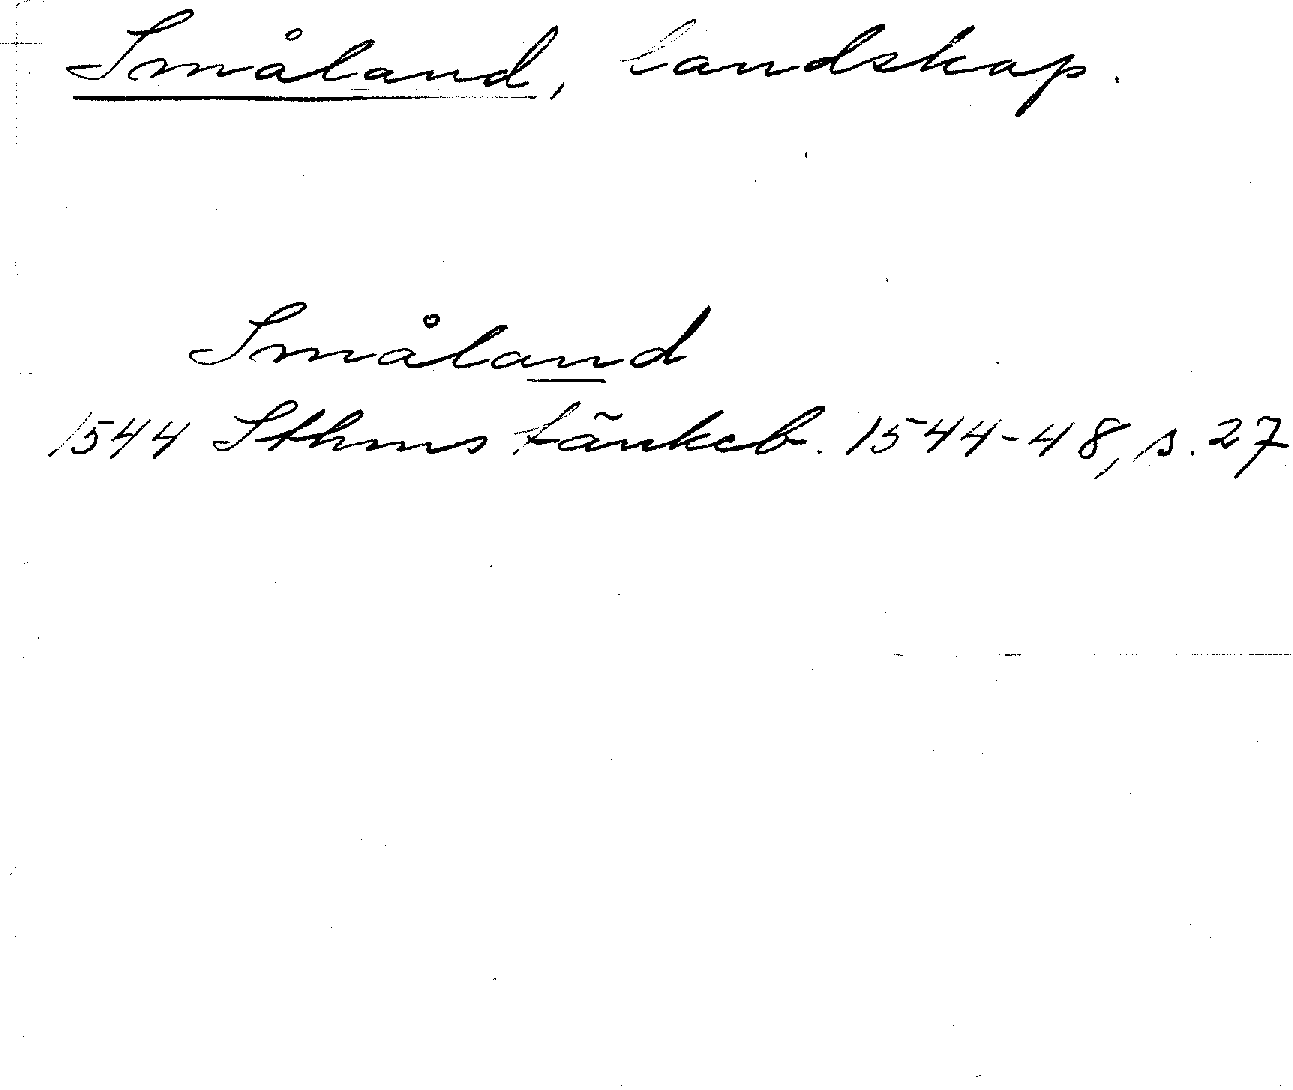 Småland, landskap.
Småland
1544 Sthms tänkeb. 1544-48, s. 27